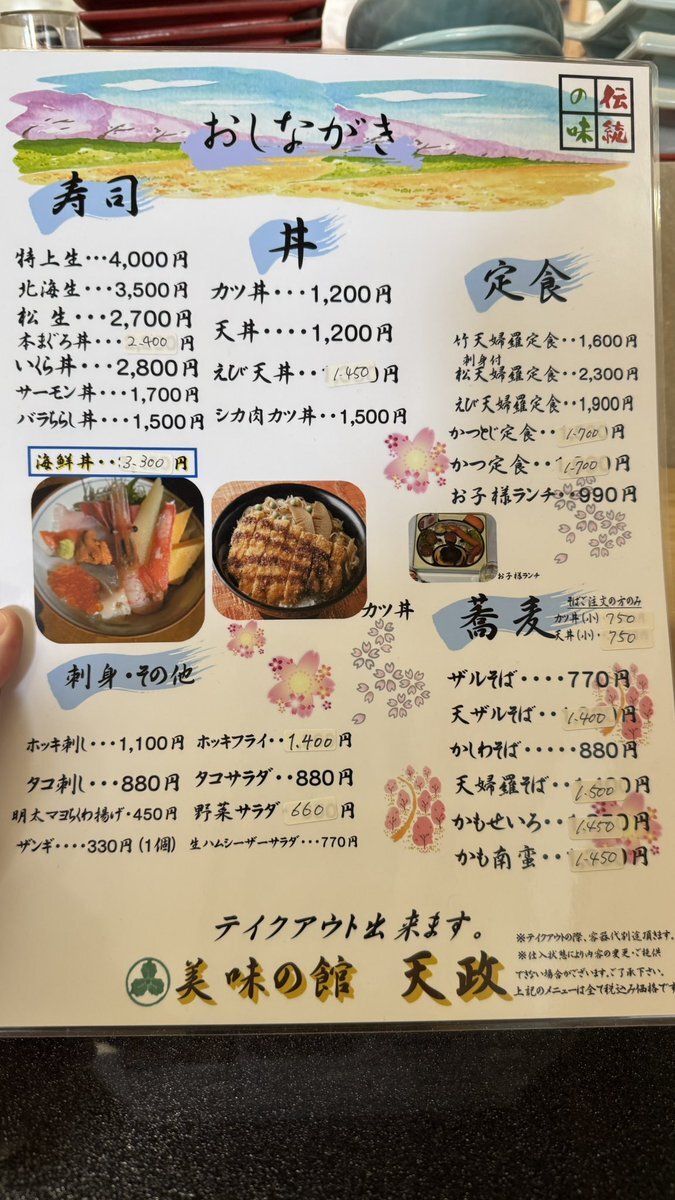 おしながき
伝統の味
寿司
特上生・・・4,000円
北海生・・・3,500円
松生・・・2,700円
本まぐろ丼・・・2.400円
いくら丼・・・2,800円
サーモン丼・・・1,700円
バラちらし丼・・1,500円
海鮮丼・・・3.300円
丼
カツ丼・・・1,200円
天丼・・・・1,200円
えび天丼・・1.450円
シカ肉カツ丼・・1,500円
カツ丼
定食
竹天婦羅定食・・1,600円
刺身付
松天婦羅定食・・2,300円
えび天婦羅定食・・1,900円
かつとじ定食・・1.700円
かつ定食・・・1.700円
お子様ランチ・・990円
お子様ランチ
蕎麦
そばご注文の方のみ
カツ丼(小)・750
天丼(小)・750
ザルそば・・・770円
天ザルそば・・1.400円
かしわそば・・・・・880円
天婦羅そば・・1.500円
かもせいろ・・1.450円
かも南蛮・・1.450円
刺身・その他
ホッキ刺し・・・1,100円
タコ刺し・・・880円
明太マヨちくわ揚げ・450円
ザンギ・・・・330円(1個)
ホッキフライ・・1.400円
タコサラダ・・880円
野菜サラダ 660円
生ハムシーザーサラダ・・・770円
テイクアウト出来ます。
美味の館 天政
※テイクアウトの際、容器代別途頂きます。
※仕入状態により内容の変更・ご提供
できない場合がございます。ご了承下さい。
上記のメニューは全て税込み価格です